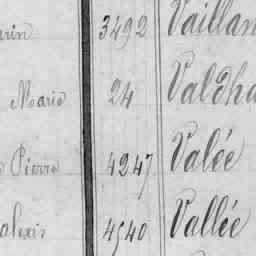 arin 3492 Vaillan
Marie 24 Valdha
Pierre 4247 Valée
alexis 4540 Vallée